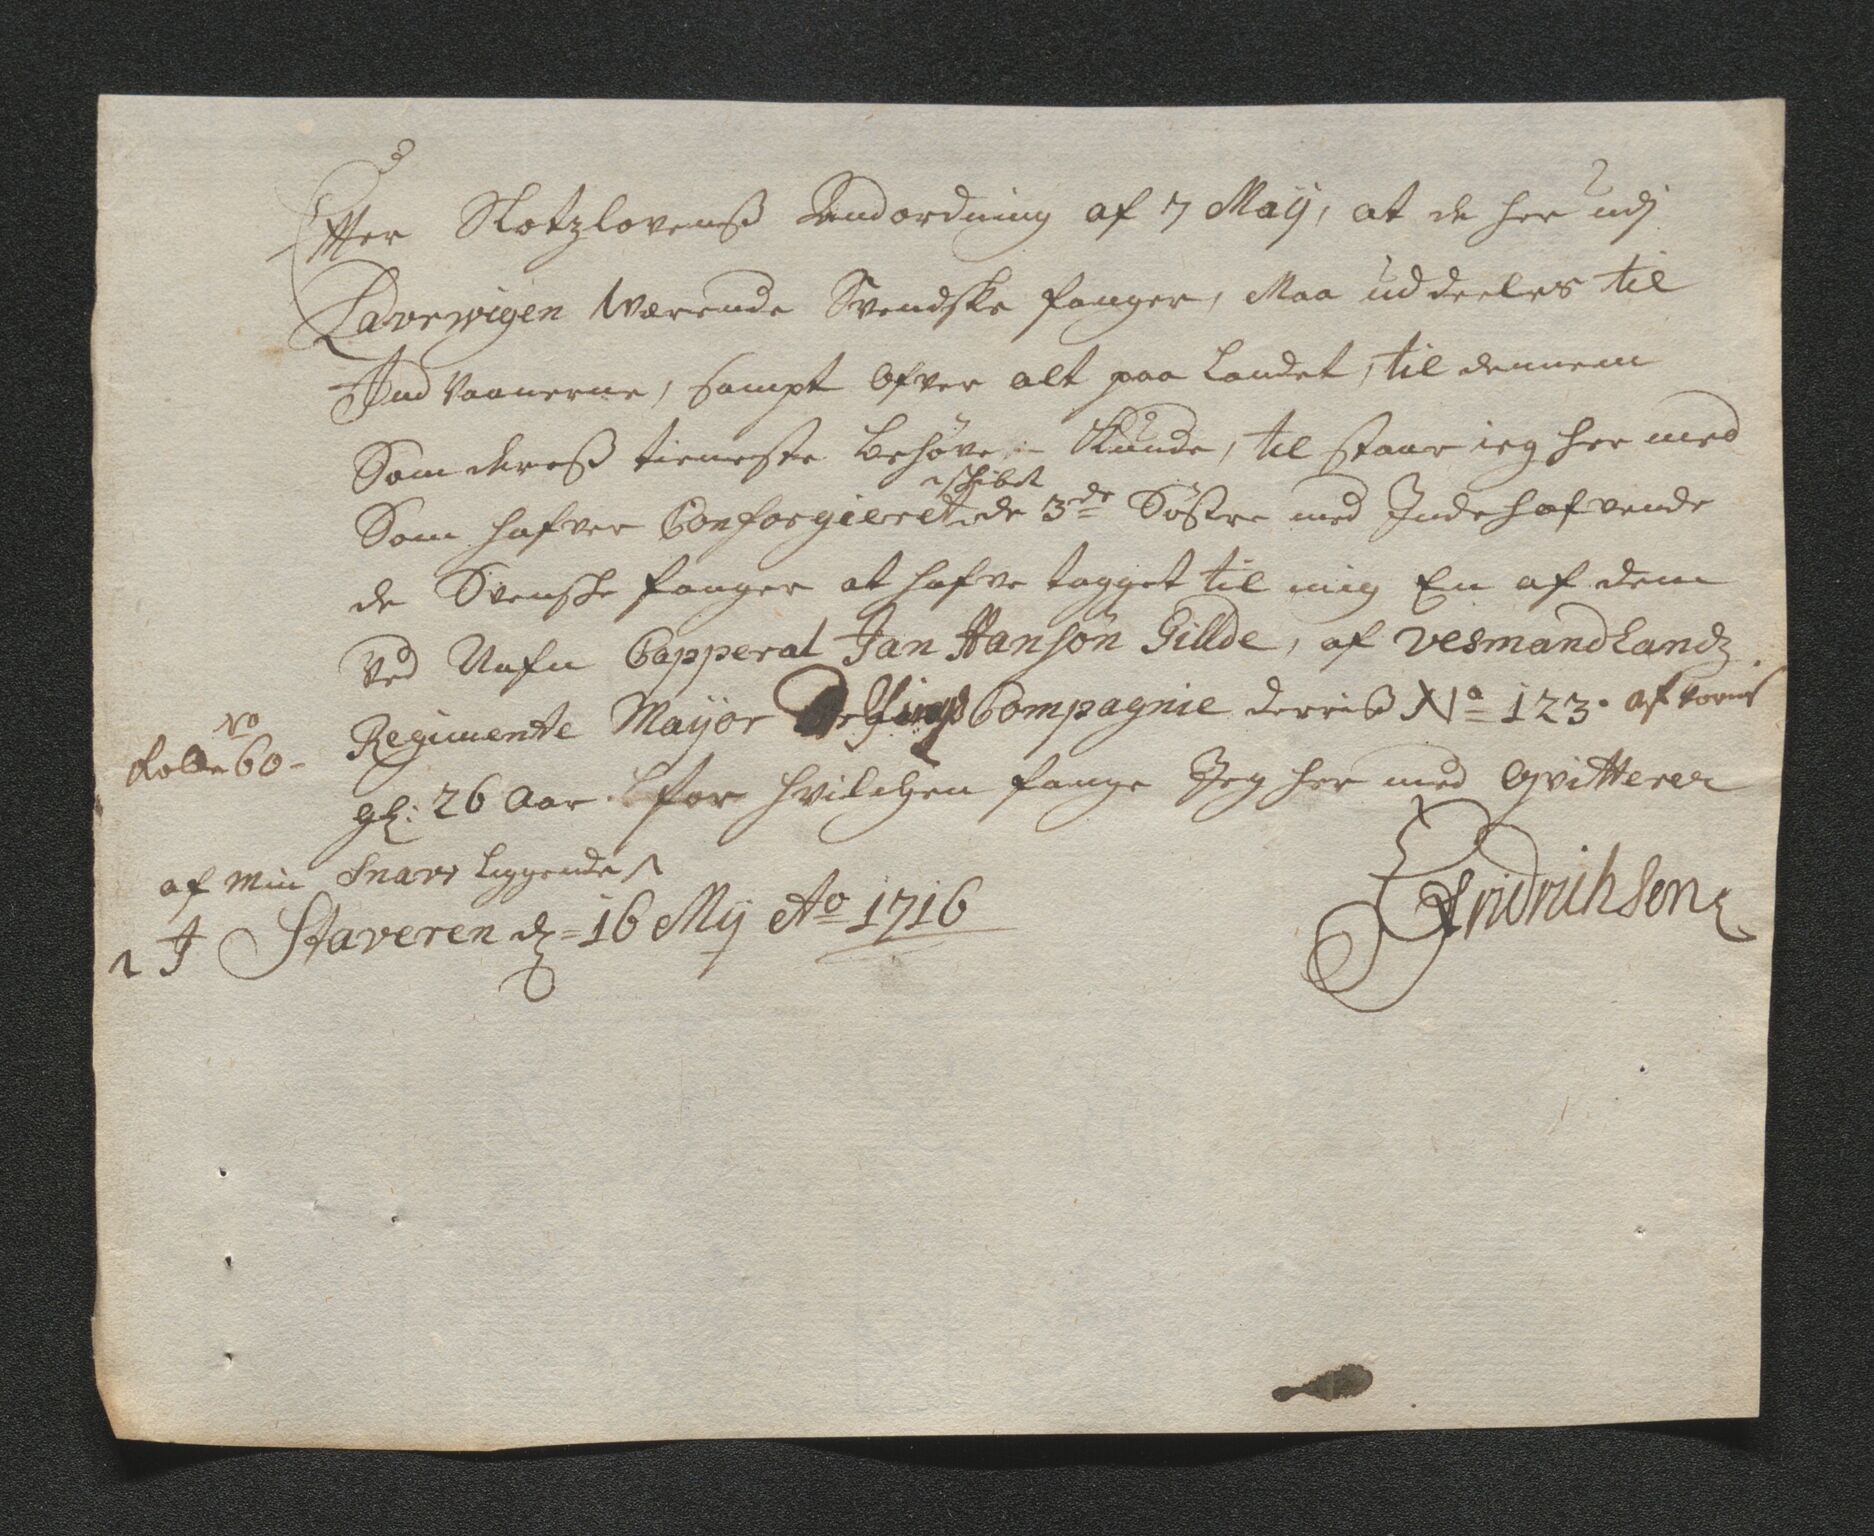 Effter Slotzlovenß Andordning af 7 Maij, at de her udj
Laurwigen Værende Svendske fanger, Maa uddeeles til
Indvaanerne, sampt ofver alt paa Landet, til dennem
Som dereß tieneste behøve Kunde, til staar ieg her med
schibet
Som hafver Conforgieret de 3de Søstre med Indehafvende
de Svenske fanger at hafve tagget til mig En af dem
Ved Nafn Capperal Jan Hansøn Gillde, af Vesmandlandz
Regimente Mayor Compagnie derriß No 123. af
No
Rolle 60
gl: 26 Aar for hvilchen fange Jeg her med Qvitterer
af min Snav liggendes
I Staveren dz 16 Mij Ao 1716
Fridrichsen